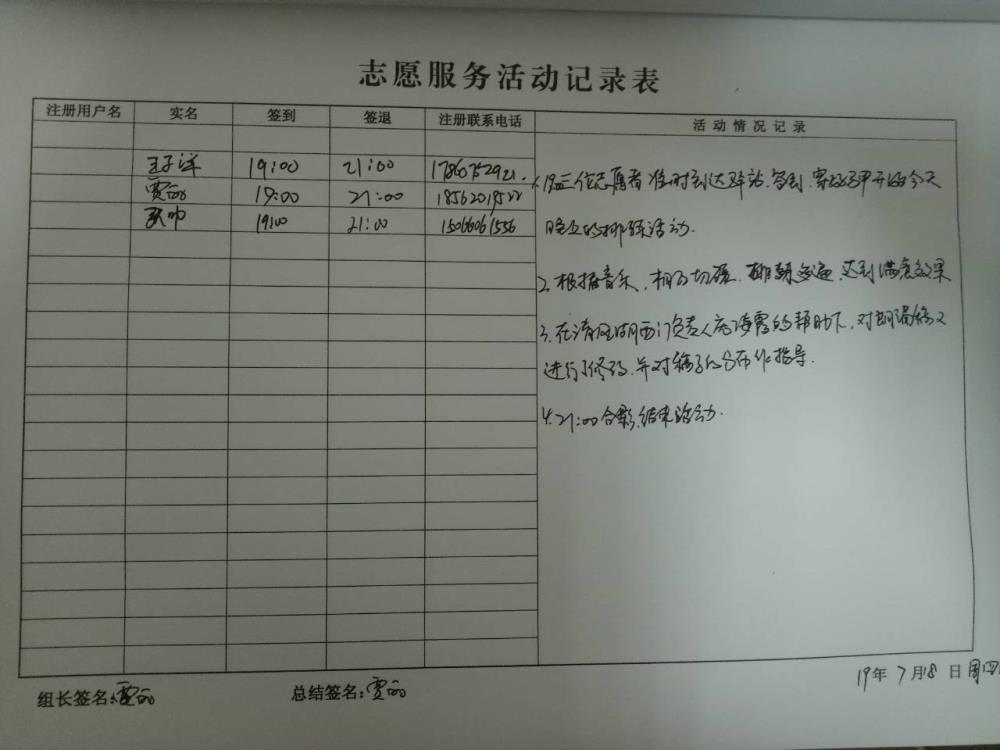 志愿服务活动记录表
注册用户名 实名 签到 签退 注册联系电话 活动情况记录
王子洋 19:00 21:00
贾丽 19:00 21:00 18562019522
19:00 21:00 15066061556
三位志愿者准时到达驿站.签到.穿好马甲开始今天
晚上的排练活动.
2.根据音乐.相互切磋.排练多遍.达到满意效果
3.在清风湖西门负责人 的帮助下.对朗诵稿又
进行了修改.并对稿子的分布作指导.
4.21:00合影.结束活动.
19年7月18日周四
组长签名:贾丽 总结签名:贾丽